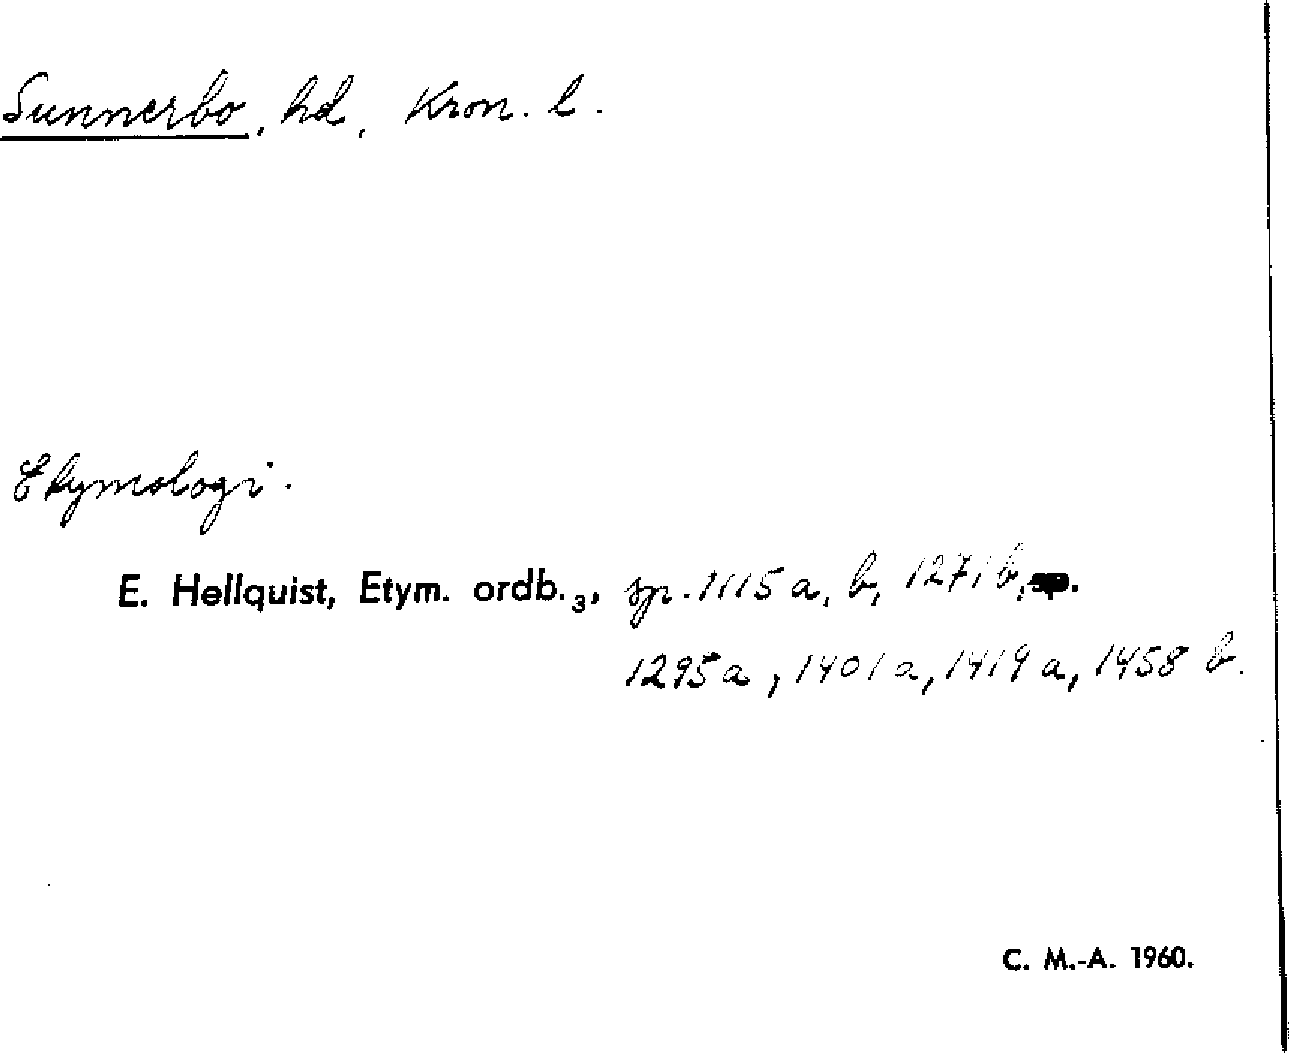 Sunnerbo, hd, Kron. l.
Etymologi.
E. Hellquist, Etym. ordb.₃, sp. 1115 a, b, 1271 b,
1295 a, 1401 a, 1419 a, 1458 b.
C. M.-A. 1960.